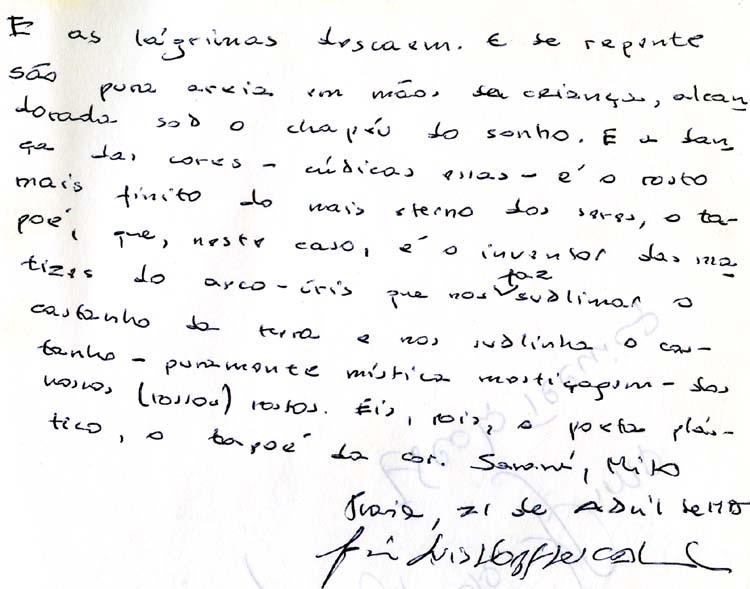 E as lágrimas descaem. E de repente
são pura areia em mãos de criança, alcan
dorada sob o chapéu do sonho. E a dan
ça das cores – lúdicas essas – é o rosto
mais finito do mais eterno dos seres, o ta-
poé, que, neste caso, é o inventor das ma
tizes do arco-íris que nos faz sublimar o
castanho da terra e nos sublinha o cas-
tanho – puramente mística mestiçagem – dos
nossos (vossos) rostos. Eis, pois, o poeta plás-
tico, o tapoé da cor. Saravá,
Praia, 21 de Abril de
Luís Hopffer